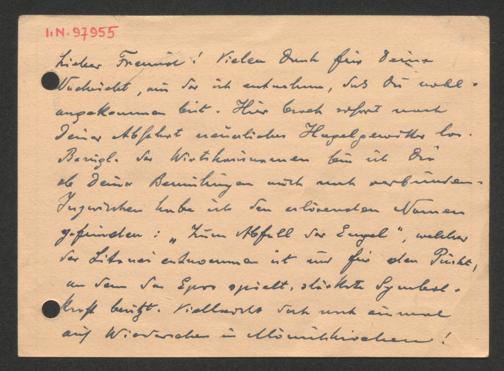 I.N. 97955
Lieber Freund! Vielen Dank für Deine
Nachricht, aus der ich entnehme, daß Du wohl-
angekommen bist. Hier brach sofort nach
Deiner Abfahrt neuerliches Hagelgewitter los.
Bezügl. des Wirtshausnamen bin ich Dir
ob Deiner Bemühungen auch noch verbunden.
Inzwischen habe ich den erlösenden Namen
gefunden: "Zum Abfall der Engel", welcher
der Literatur entnommen ist und für den Punkt,
an dem das Epos spielt, stärkste Symbol-
kraft besitzt. Vielleicht doch noch einmal
auf Wiedersehen in Mönichkirchen!